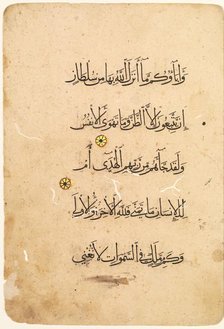 وآباؤكم ما أنزل الله بها من سلطان
إن يتبعون إلا الظن وما تهوى الأنفس
ولقد جاءهم من ربهم الهدى أم
للإنسان ما تمنى فلله الآخرة والأولى
وكم من ملك في السموات لا تغني